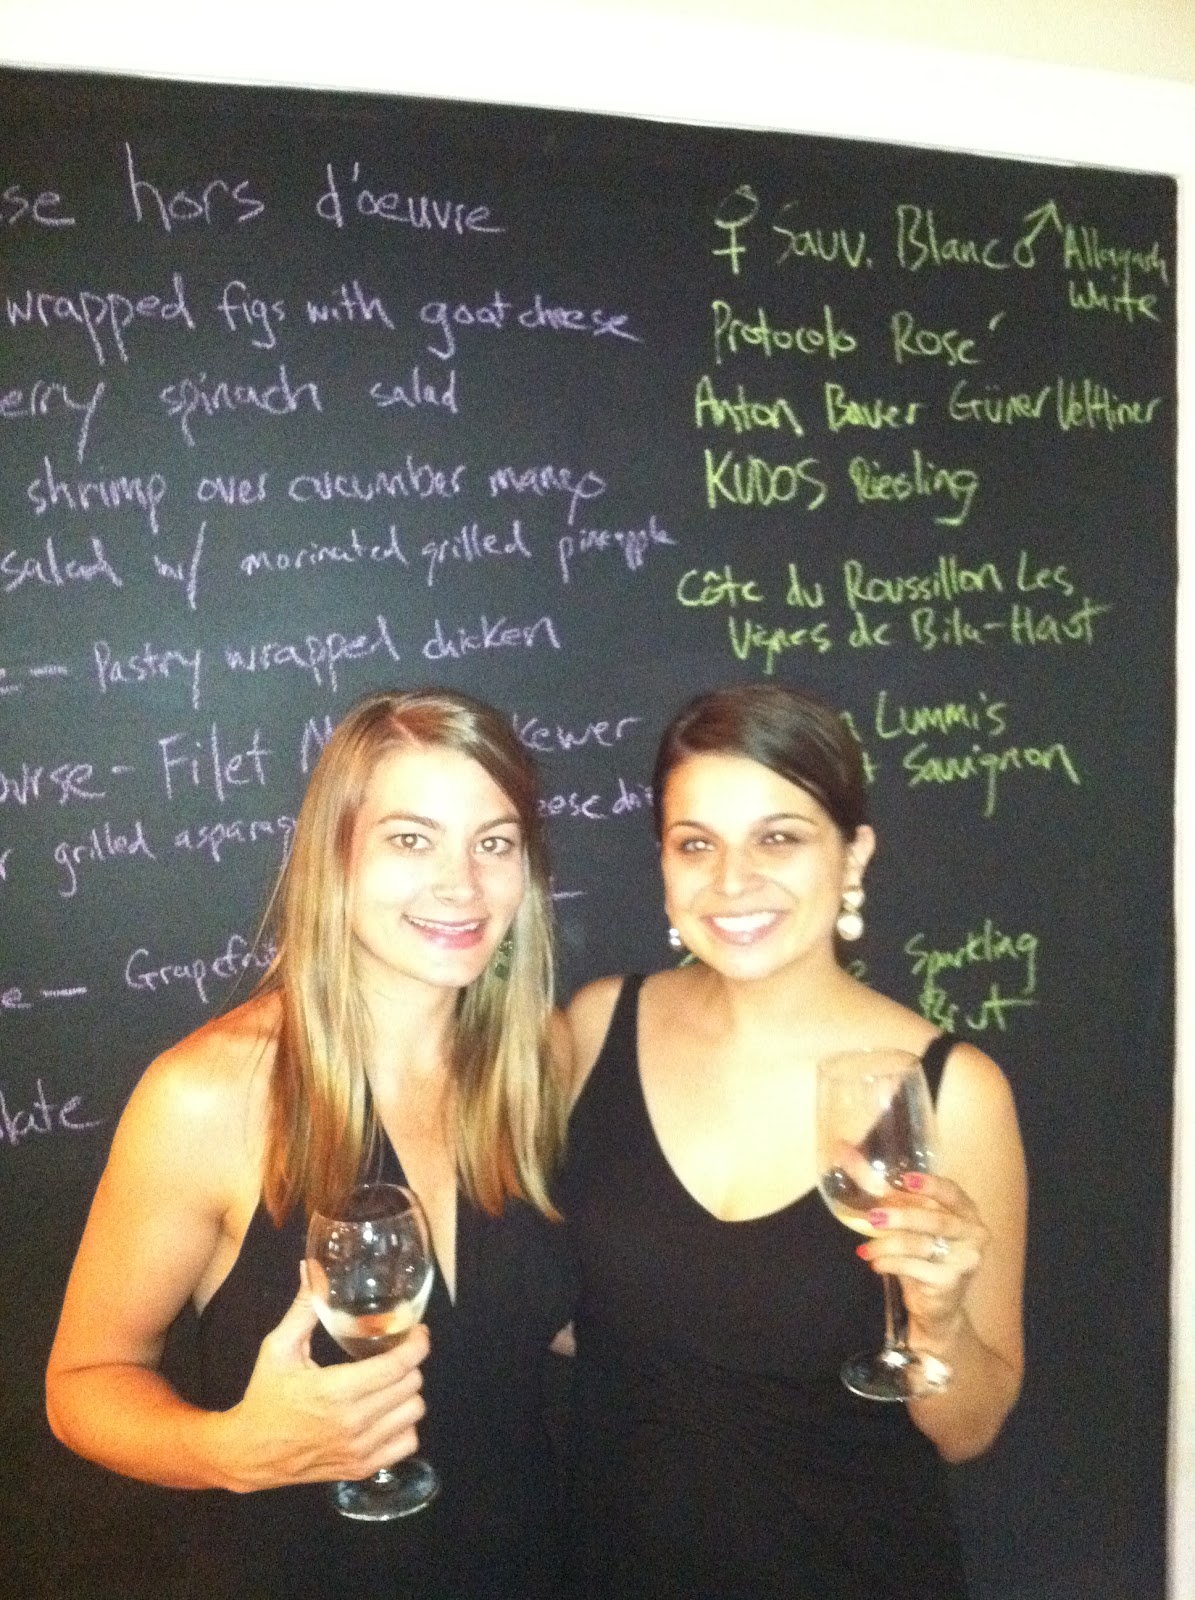 hors d'oeuvre
wrapped figs with goat cheese
spinach salad
shrimp over cucumber mango
salad w/ marinated grilled pineapple
Pastry wrapped chicken
Filet
grilled
♀ Sauv. Blanc ♂ Allagash
White
Protocolo Rosé
Anton Bauer Grüner Veltliner
KUDOS Riesling
Côte du Roussillon Les
Vignes de Bila-Haut
Lummis
Sauvignon
Sparkling
Brut